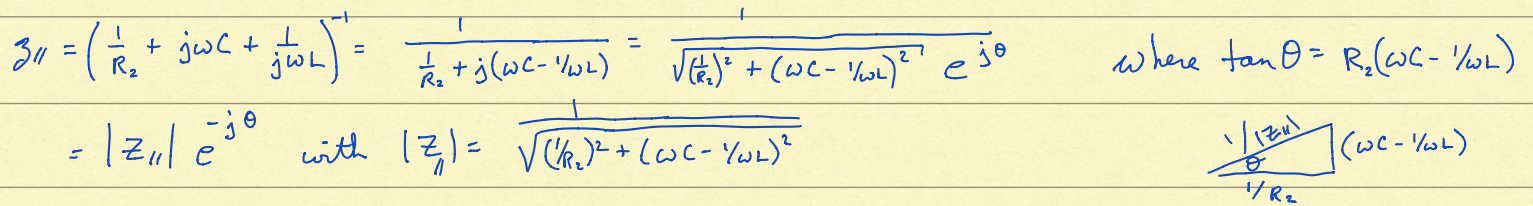 z// = (1/R₂ + jωC + 1/jωL)⁻¹ = 1/(1/R₂ + j(ωC - 1/ωL)) = 1/(√((1/R₂)² + (ωC - 1/ωL)²) e^jθ) where tan θ = R₂(ωC - 1/ωL)
= |Z//| e^-jθ with |Z//| = 1/√((1/R₂)² + (ωC - 1/ωL)²)
1/|Z//| (ωC - 1/ωL)
θ
1/R₂